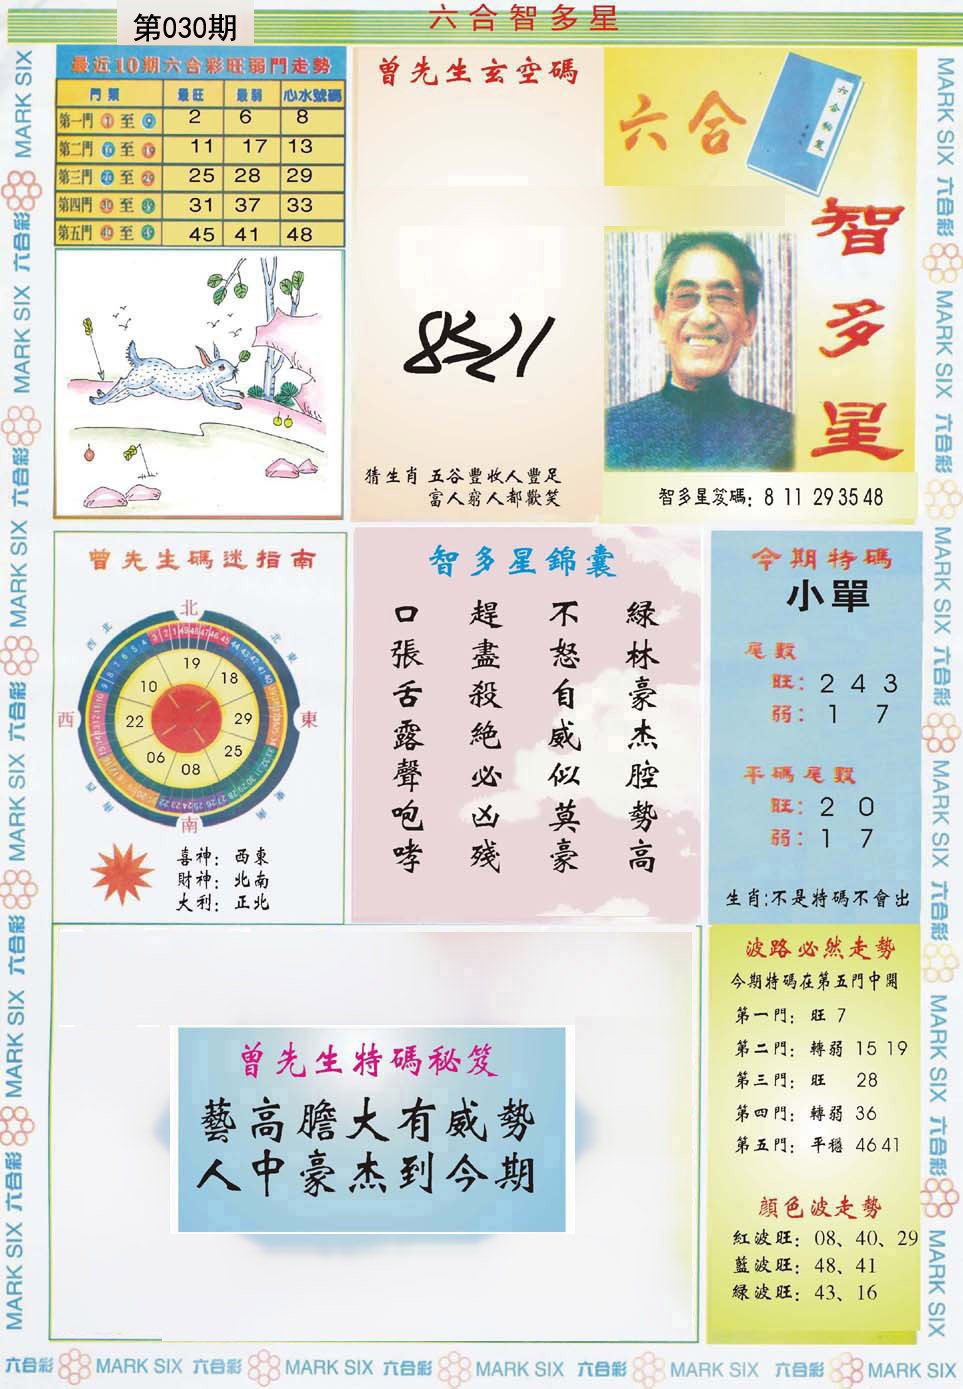 第030期
六合智多星
最近10期六合彩旺弱門走勢
門類 最旺 最弱 心水號碼
第一門 1 至 9 2 6 8
第二門 10 至 19 11 17 13
第三門 20 至 29 25 28 29
第四門 30 至 39 31 37 33
第五門 40 至 49 45 41 48
曾先生玄空碼
猜生肖 五谷豐收人豐足
富人窮人都歡笑
六合
智多星
智多星笈碼: 8 11 29 35 48
曾先生碼迷指南
北
東北
東
東南
南
西南
西
西北
19
18
29
25
08
06
22
10
喜神: 西東
財神: 北南
大利: 正北
智多星錦囊
綠林豪杰腔勢高
不怒自威似莫豪
趕盡殺絕必凶殘
口張舌露聲咆哮
今期特碼
小單
尾數
旺: 2 4 3
弱: 1 7
平碼尾數
旺: 2 0
弱: 1 7
生肖:不是特碼不會出
曾先生特碼秘笈
藝高膽大有威勢
人中豪杰到今期
波路必然走勢
今期特碼在第五門中開
第一門: 旺 7
第二門: 轉弱 15 19
第三門: 旺 28
第四門: 轉弱 36
第五門: 平穩 46 41
顏色波走勢
紅波旺: 08、40、29
藍波旺: 48、41
綠波旺: 43、16
MARK SIX 六合彩 MARK SIX 六合彩 MARK SIX 六合彩 MARK SIX 六合彩 MARK SIX 六合彩 MARK SIX
MARK SIX 六合彩 MARK SIX 六合彩 MARK SIX 六合彩 MARK SIX 六合彩 MARK SIX 六合彩 MARK SIX
六合彩 MARK SIX 六合彩 MARK SIX 六合彩 MARK SIX 六合彩 MARK SIX 六合彩 MARK SIX